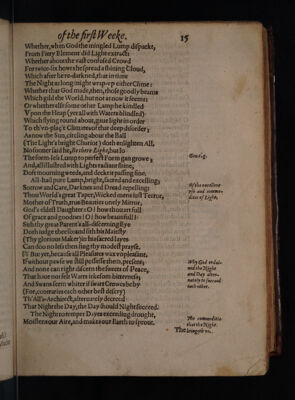 of the first Weeke. 15
Whether, when God the mingled Lump dispackt,
From Fiery Element did Light extract:
Whether about the vast confused Crowd
For twice-six howrs he spread a shining Cloud,
Which after he re-darkned, that in time
The Night as long might wrap-vp either Clime:
Whether that God made, then, those goodly beams
Which gild the World, but not as now it seemes:
Or whether else some other Lamp he kindled
Vpon the Heap (yet all with Waters blindled)
Which flying round about, gaue light in order
To th'vn-plac't Climates of that deep disorder;
As now the Sun, circling about the Ball
(The Light's bright Chariot) doth enlighten All.
No sooner said he, Be there Light, but lo
The form-less Lump to perfect Form gan growe;
And, all illustred with Lights radiant shine,
Doft mourning weeds, and deckt it passing fine.
All-hail pure Lamp, bright, sacred and excelling;
Sorrow and Care, Darknes and Dread repelling:
Thou World's great Taper, Wicked mens iust Terror,
Mother of Truth, true Beauties onely Mirror,
God's eldest Daughter: O! how thou art full
Of grace and goodnes! O! how beautifull!
Sith thy great Parent's all-discerning Eye
Doth iudge thee so: and sith his Maiesty
(Thy glorious Maker) in his sacred layes
Can doo no less then sing thy modest praise.
But yet, because all Pleasures wax vnpleasant,
If without pawse we still possesse them, present;
And none can right discern the sweets of Peace,
That haue not felt Wars irkesom bitternes;
And Swans seem whiter if swart Crowes be by
(For, contraries each other best descry)
Th'All's-Architect, alternately decreed
That Night the Day, the Day should Night succeed.
The Night, to temper Dayes exceeding drought,
Moistens our Aire, and makes our Earth to sprout.
The
Gen. 1. 3.
Of the excellencie
and commodities
of Light.
Why God ordained
the Night
and Day alternately
to succeed
each other.
The commodities
that the Night
bringeth vs.